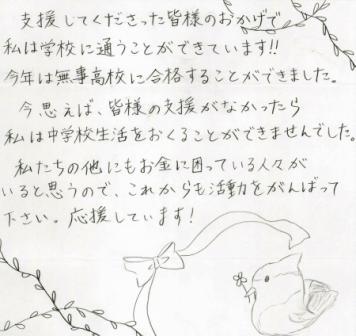 支援してくださった皆様のおかげで
私は学校に通うことができています!!
今年は無事高校に合格することができました。
今思えば、皆様の支援がなかったら
私は中学校生活をおくることができませんでした。
私たちの他にもお金に困っている人々が
いると思うので、これからも活動をがんばって
下さい。応援しています!